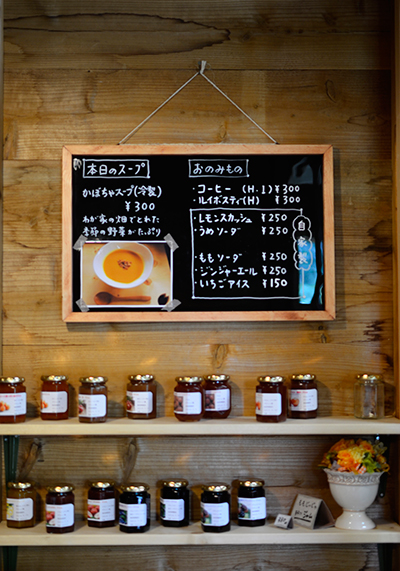 本日のスープ
かぼちゃスープ(冷製)
¥300
わが家の畑でとれた
季節の野菜がたっぷり
おのみもの
・コーヒー (H.I) ¥300
・ルイボスティ(H) ¥300
・レモンスカッシュ ¥250
・うめソーダ ¥250
・ももソーダ ¥250
・ジンジャーエール ¥250
・いちごアイス ¥150
自家製